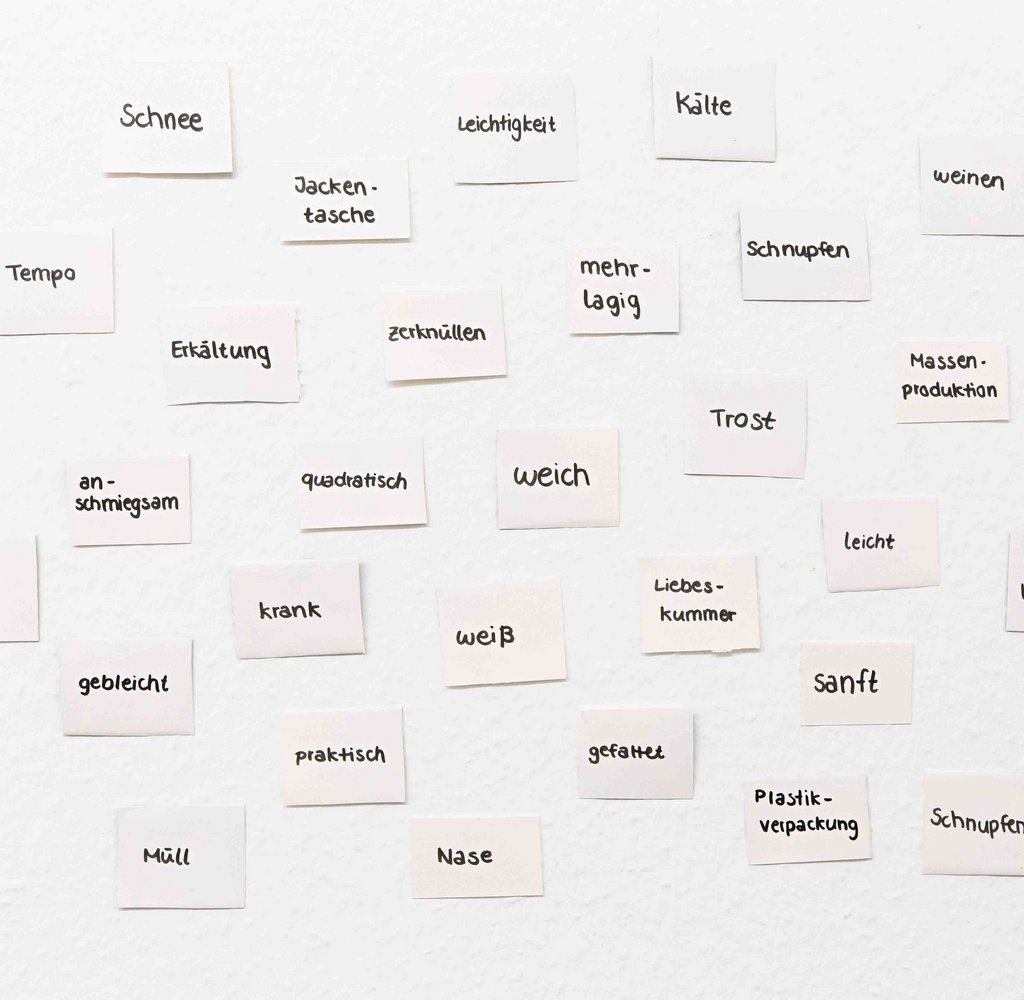 Schnee
Leichtigkeit
Kälte
weinen
Jacken-
tasche
Schnupfen
Tempo
mehr-
lagig
Erkältung
zerknüllen
Massen-
produktion
Trost
an-
schmiegsam
quadratisch
weich
leicht
krank
weiß
Liebes-
kummer
gebleicht
sanft
praktisch
gefaltet
Plastik-
verpackung
Schnupfen
Müll
Nase